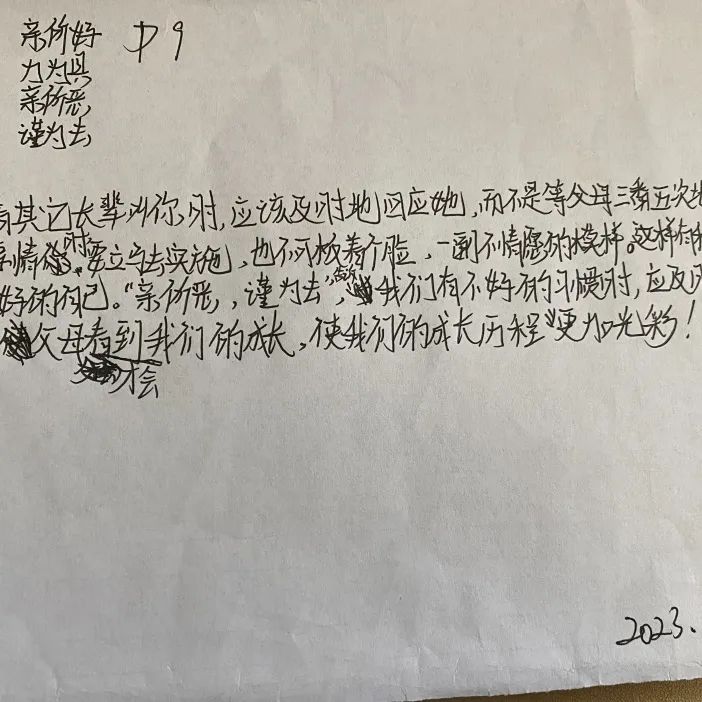 亲所好 P9
力为具
亲所恶，
谨为去
其它长辈叫你时，应该及时地回应她，而不是等父母三番五次
情你时要立马去实施，也不可板着个脸，一副不情愿的模样。这样
好的自己。“亲所恶，谨为去”，我们有不好的习惯时，应及
父母看到我们的成长，使我们的成长历程更加光彩！
才会
2023.